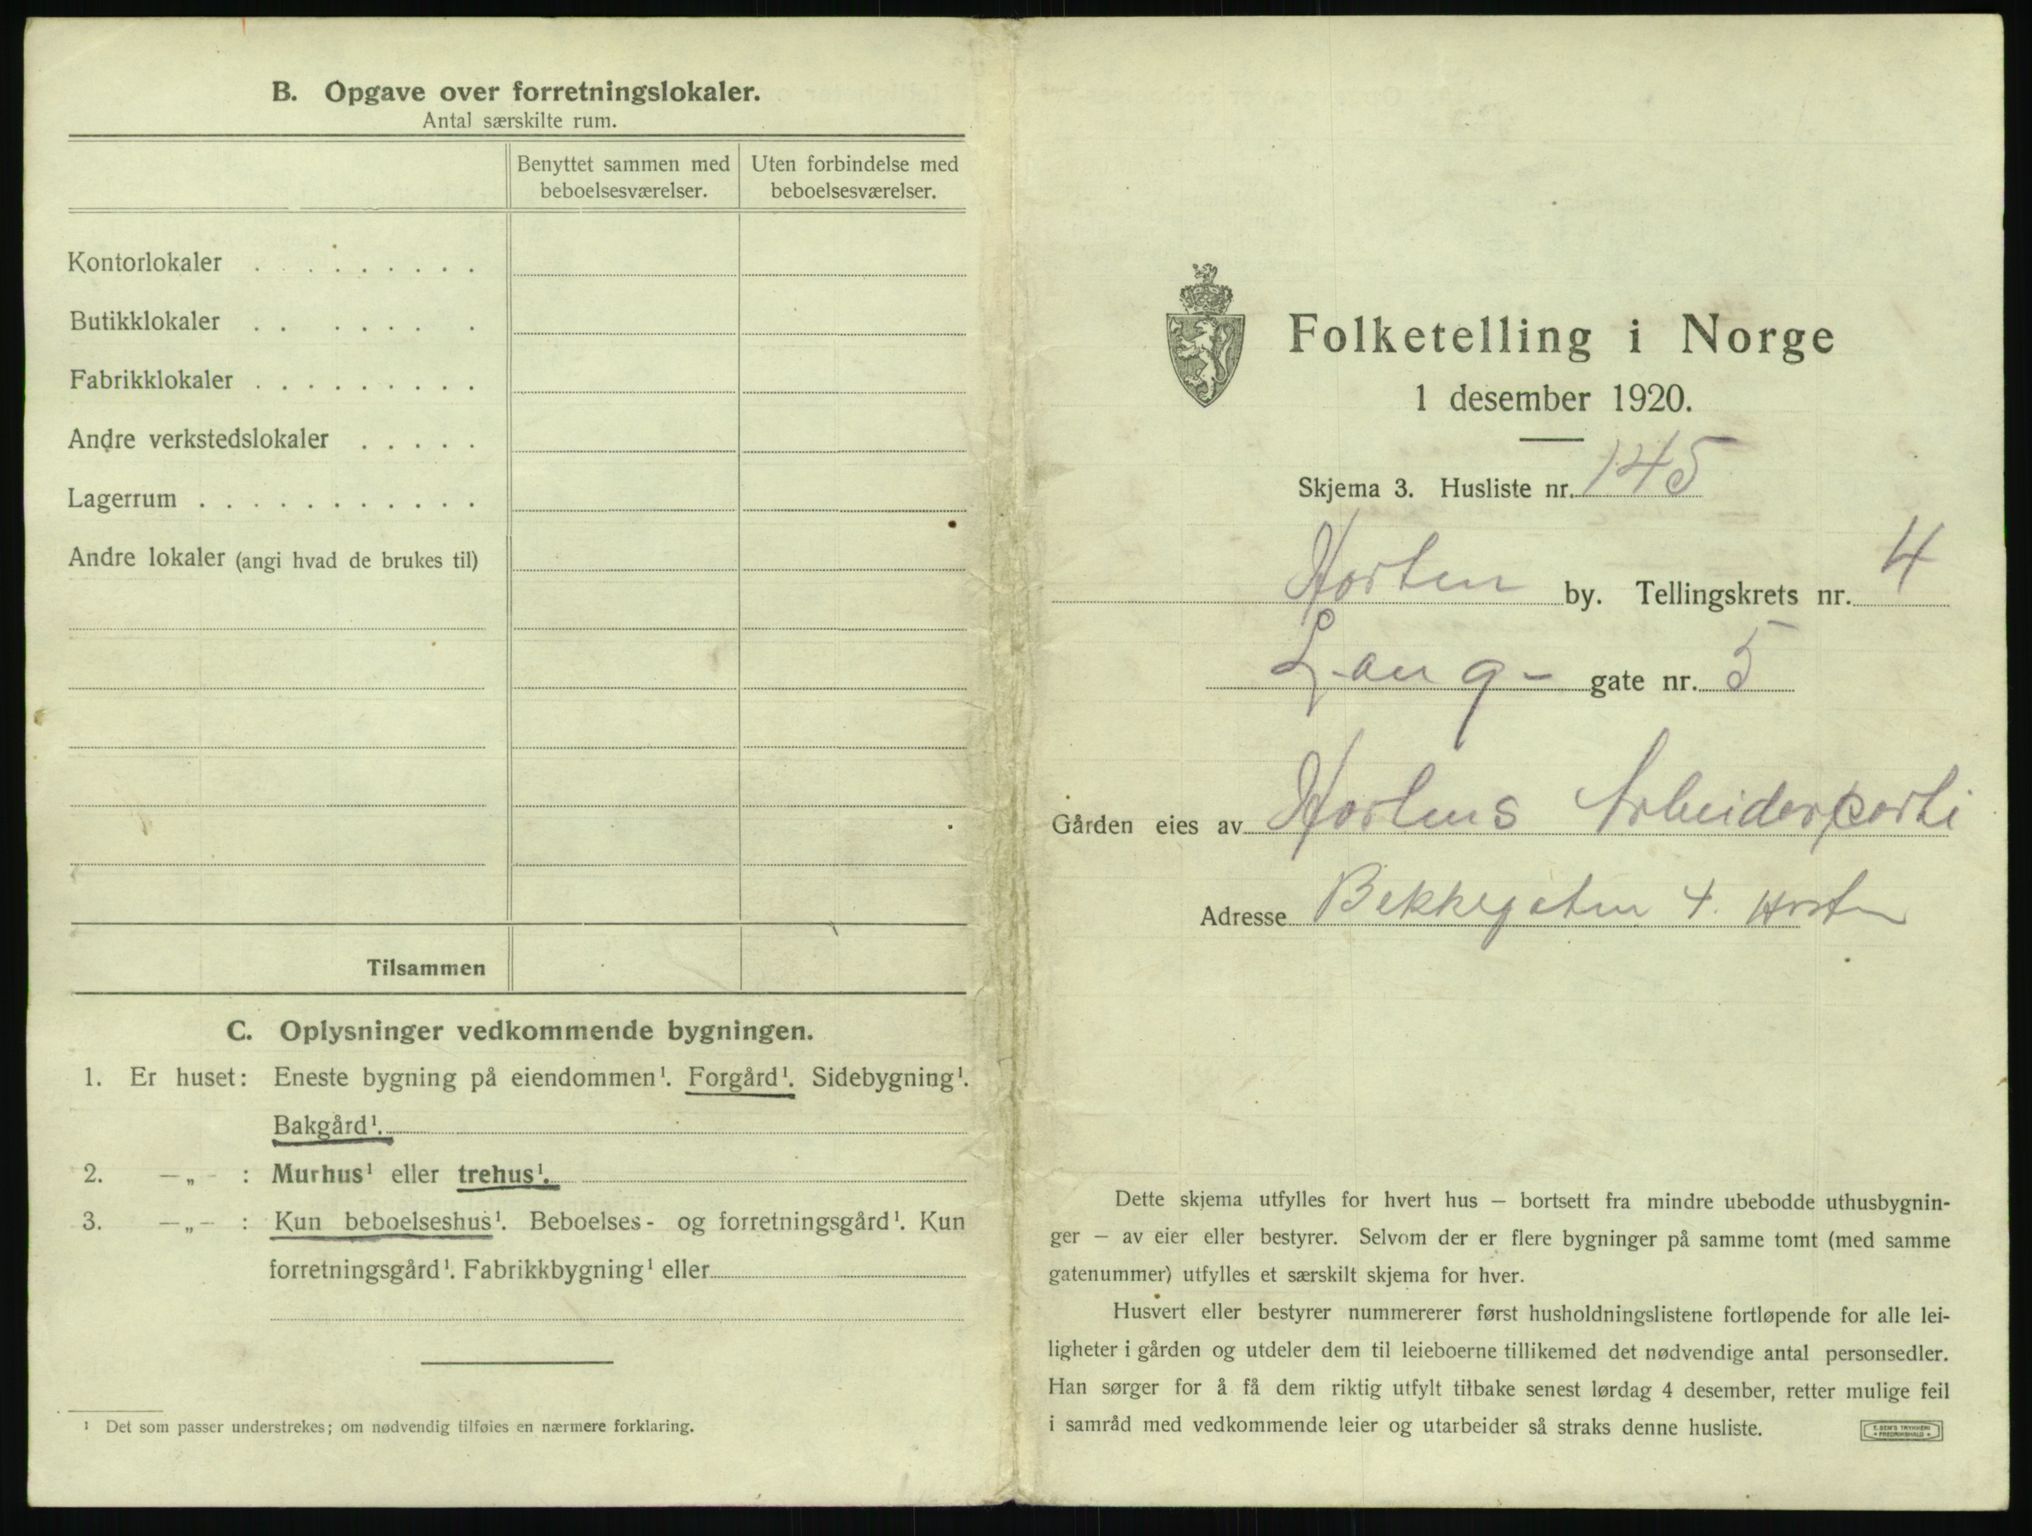 B. Opgave over forretningslokaler.
Antal særskilte rum.
Benyttet sammen med beboelsesværelser.
Uten forbindelse med beboelsesværelser.
Kontorlokaler . . . . . . . . .
Butikklokaler . . . . . . . .
Fabrikklokaler . . . . . . . . .
Andre verkstedslokaler . . . . .
Lagerrum . . . . . . . . . . .
Andre lokaler (angi hvad de brukes til)
Tilsammen
C. Oplysninger vedkommende bygningen.
1. Er huset: Eneste bygning på eiendommen¹. Forgård¹. Sidebygning¹.
Bakgård¹.
2. —„— : Murhus¹ eller trehus¹.
3. —„— : Kun beboelseshus¹. Beboelses- og forretningsgård¹. Kun
forretningsgård¹. Fabrikkbygning¹ eller
¹ Det som passer understrekes; om nødvendig tilføies en nærmere forklaring.
Folketelling i Norge
1 desember 1920.
Skjema 3. Husliste nr. 145
Horten by. Tellingskrets nr. 4
Lang- gate nr. 5
Gården eies av Hortens Arbeiderparti
Adresse Bekkegaten 4. Horten
Dette skjema utfylles for hvert hus — bortsett fra mindre ubebodde uthusbygnin-
ger — av eier eller bestyrer. Selvom der er flere bygninger på samme tomt (med samme
gatenummer) utfylles et særskilt skjema for hver.
Husvert eller bestyrer nummererer først husholdningslistene fortløpende for alle lei-
ligheter i gården og utdeler dem til leieboerne tillikemed det nødvendige antal personsedler.
Han sørger for å få dem riktig utfylt tilbake senest lørdag 4 desember, retter mulige feil
i samråd med vedkommende leier og utarbeider så straks denne husliste.
E. SEM'S TRYKKERI
FREDRIKSHALD